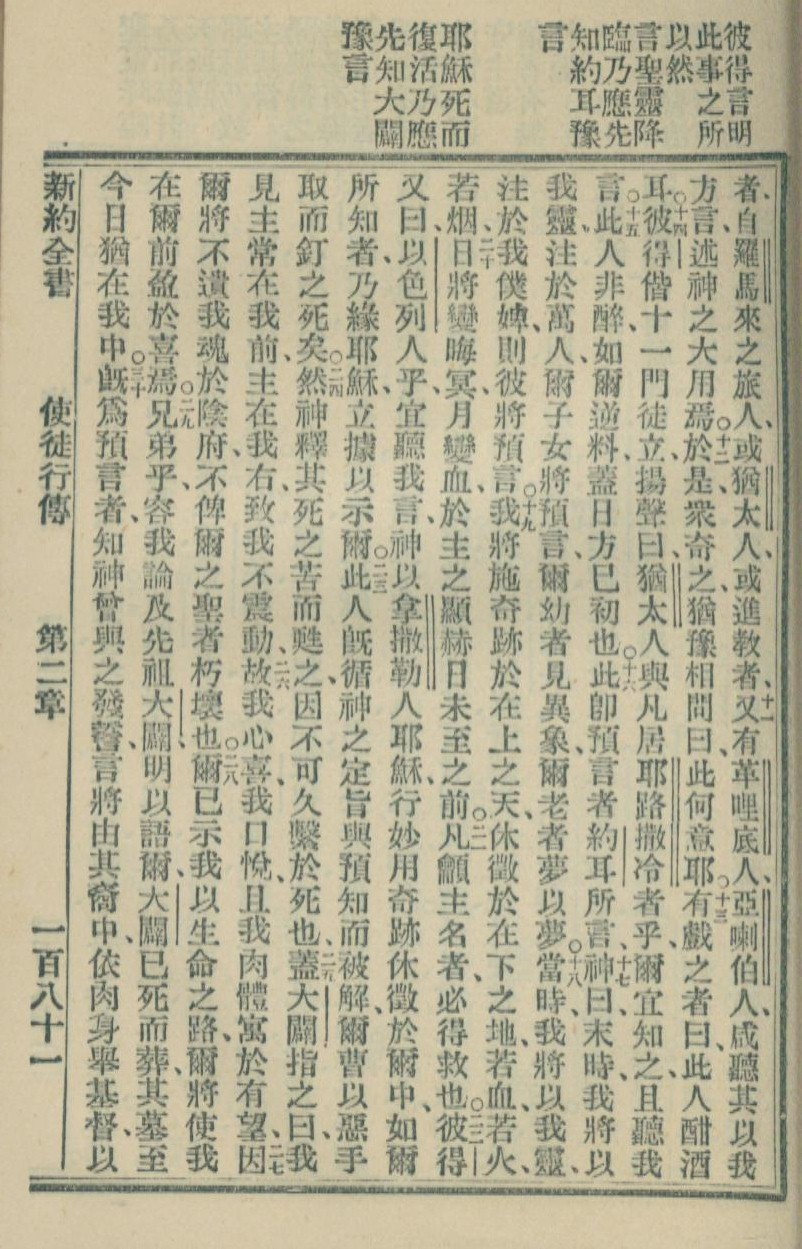 彼得言明
此事之所
以然
言聖靈降
臨乃應先
知約耳豫
言
耶穌死而
復活乃應
先知大闢
豫言
者、自羅馬來之旅人、或猶太人、或進教者、十一又有革哩底人、亞喇伯人、咸聽其以我
方言、述神之大用焉、○十二於是衆奇之、猶豫相問曰、此何意耶、○十三有戲之者曰、此人酣酒
耳、○十四彼得偕十一門徒立、揚聲曰、猶太人與凡居耶路撒冷者乎、爾宜知之、且聽我
言、○十五此人非醉、如爾逆料、蓋日方巳初也、○十六此卽預言者約耳所言、十七神曰、末時、我將以
我靈、注於萬人、爾子女將預言、爾幼者見異象、爾老者夢以夢、○十八當時、我將以我靈、
注於我僕婢、則彼將預言、○十九我將施奇跡於在上之天、休徵於在下之地、若血、若火、
若烟、二十日將變晦冥、月變血、於主之顯赫日未至之前、○二一凡龥主名者、必得救也、○二二彼得
又曰、以色列人乎、宜聽我言、神以拿撒勒人耶穌、行妙用奇跡休徵於爾中、如爾
所知者、乃緣耶穌、立據以示爾、○二三此人旣循神之定旨與預知而被解、爾曹以惡手
取而釘之死矣、○二四然神釋其死之苦而甦之、因不可久繫於死也、二五蓋大闢指之曰、我
見主常在我前、主在我右、致我不震動、二六故我心喜、我口悅、且我肉體寓於有望、二七因
爾將不遺我魂於陰府、不俾爾之聖者朽壞也、○二八爾已示我以生命之路、爾將使我
在爾前盈於喜焉、○二九兄弟乎、容我論及先祖大闢、明以語爾、大闢已死而葬、其墓至
今日猶在我中、○三十旣爲預言者、知神曾與之發誓、言將由其裔中、依肉身舉基督、以
新約全書　使徒行傳　第二章　一百八十一